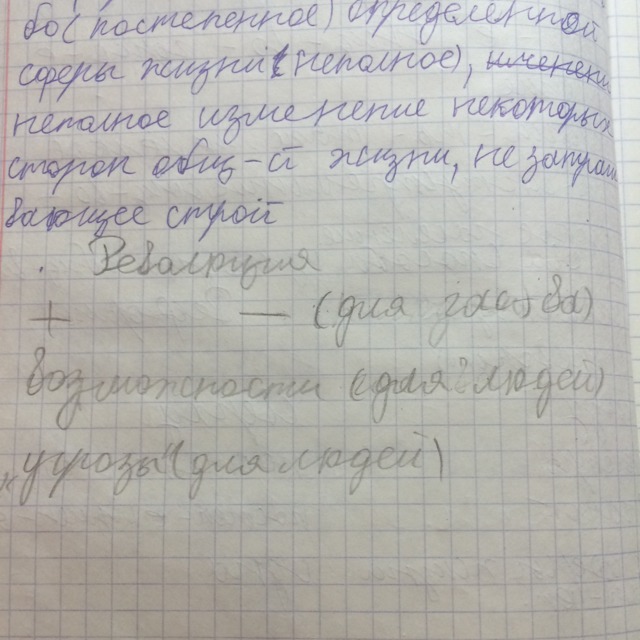 бо(постепенное) определенной
сферы жизни (неполное),
неполное изменение некоторых
сторон общ-й жизни, не затраги
вающее строй
. Революция
+ — (для гос-ва)
возможности (для людей)
"угрозы" (для людей)